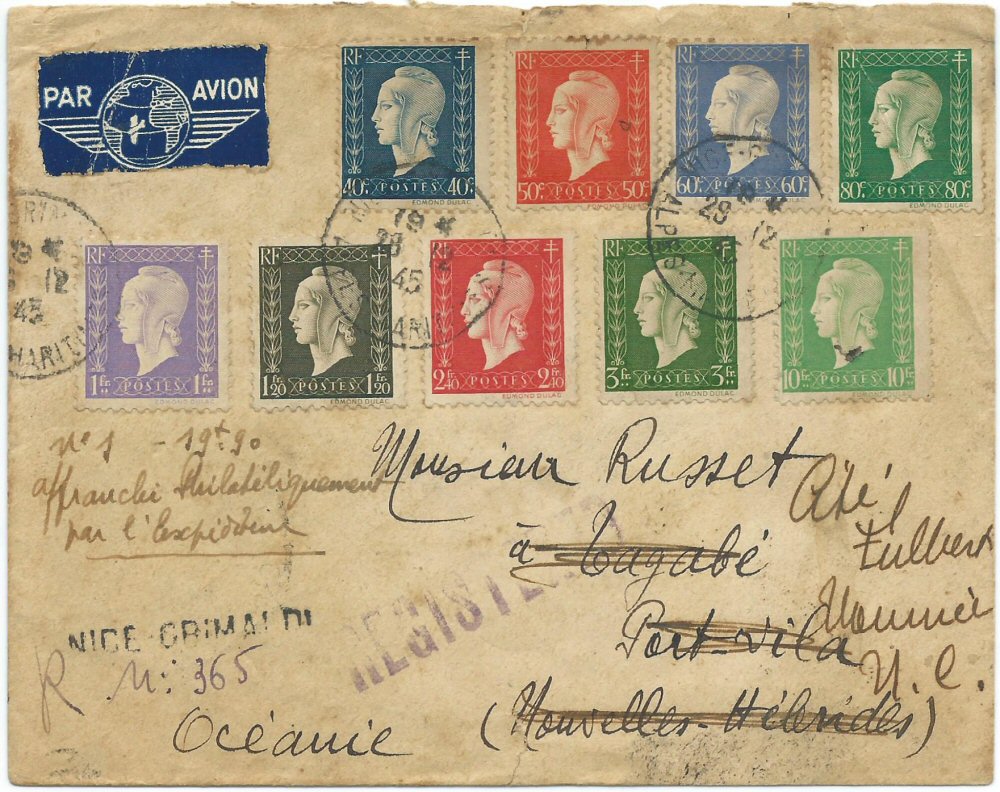 PAR AVION
RF
40c. POSTES 40c.
EDMOND DULAC
RF
50c. POSTES 50c.
EDMOND DULAC
RF
60c. POSTES 60c.
EDMOND DULAC
RF
80c. POSTES 80c.
EDMOND DULAC
RF
1fr. POSTES 1fr.
EDMOND DULAC
RF
1fr.20 POSTES 1fr.20
EDMOND DULAC
RF
2fr.40 POSTES 2fr.40
EDMOND DULAC
RF
3fr. POSTES 3fr.
EDMOND DULAC
RF
10fr. POSTES 10fr.
EDMOND DULAC
12
45
19 *
28 12
45
29 12
n° 1 - 19f90
affranchi Philatéliquement
par l'Expéditeur
Monsieur Russet
à Tagabé
Port-Vila
(Nouvelles-Hébrides)
Océanie
Fulbert
Nouméa
N.C.
REGISTERED
NICE-GRIMALDI
R N: 365